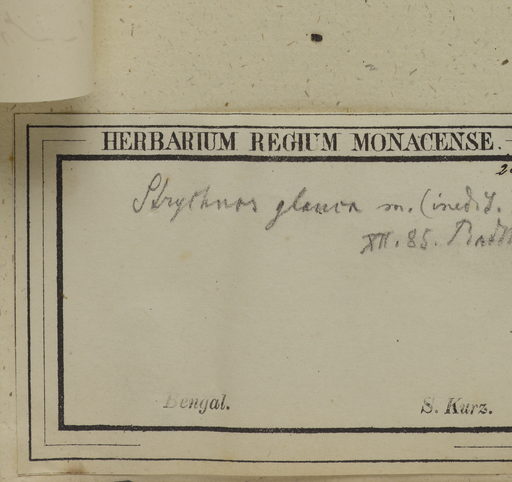 HERBARIUM REGIUM MONACENSE.
Strychnos glauca m. (inedit.
XII. 85.
Bengal.
S. Kurz.